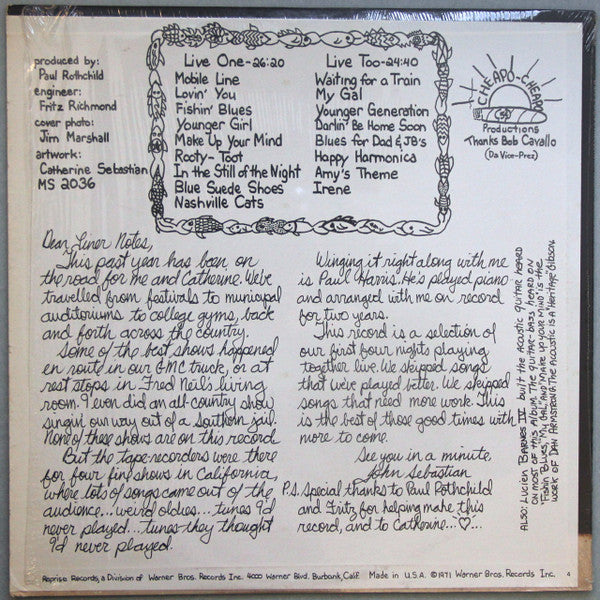 produced by:
Paul Rothchild
engineer:
Fritz Richmond
cover photo:
Jim Marshall
artwork:
Catherine Sebastian
MS 2036
Live One-26:20
Mobile Line
Lovin' You
Fishin' Blues
Younger Girl
Make Up Your Mind
Rooty-Toot
In the Still of the Night
Blue Suede Shoes
Nashville Cats
Live Too-24:40
Waiting for a Train
My Gal
Younger Generation
Darlin' Be Home Soon
Blues for Dad & JB's
Happy Harmonica
Amy's Theme
Irene
CHEAPO-CHEAPO
Productions
Thanks Bob Cavallo
(Da Vice-Prez)
Dear Liner Notes,
This past year has been on
the road for me and Catherine. We've
travelled from festivals to municipal
auditoriums to college gyms, back
and forth across the country.
Some of the best shows happened
en route in our GMC truck, or at
rest stops in Fred Neil's living
room. I even did an all-country show
singin our way out of a Southern jail.
None of these shows are on this record.
But the tape-recorders were there
for four fine shows in California,
where lots of songs came out of the
audience...weird oldies...tunes I'd
never played...tunes they thought
I'd never played.
Winging it right along with me
is Paul Harris. He's played piano
and arranged with me on record
for two years.
This record is a selection of
our first four nights playing
together live. We skipped songs
that we've played better. We skipped
songs that need more work. This
is the best of those good times with
more to come.
See you in a minute,
John Sebastian
P.S. Special thanks to Paul Rothchild
and Fritz for helping make this
record, and to Catherine...♡...
ALSO: LUCIEN BARNES IV built the acoustic guitar heard
on most of this album. The guitar-bass heard on
"Fishin' Blues," "My Gal," and "Make Up Your Mind" is the
work of Dan Armstrong. The acoustic is a "Heritage" Gibson.
Reprise Records, a Division of Warner Bros. Records Inc. 4000 Warner Blvd. Burbank, Calif. Made in U.S.A. ©1971 Warner Bros. Records Inc. 4